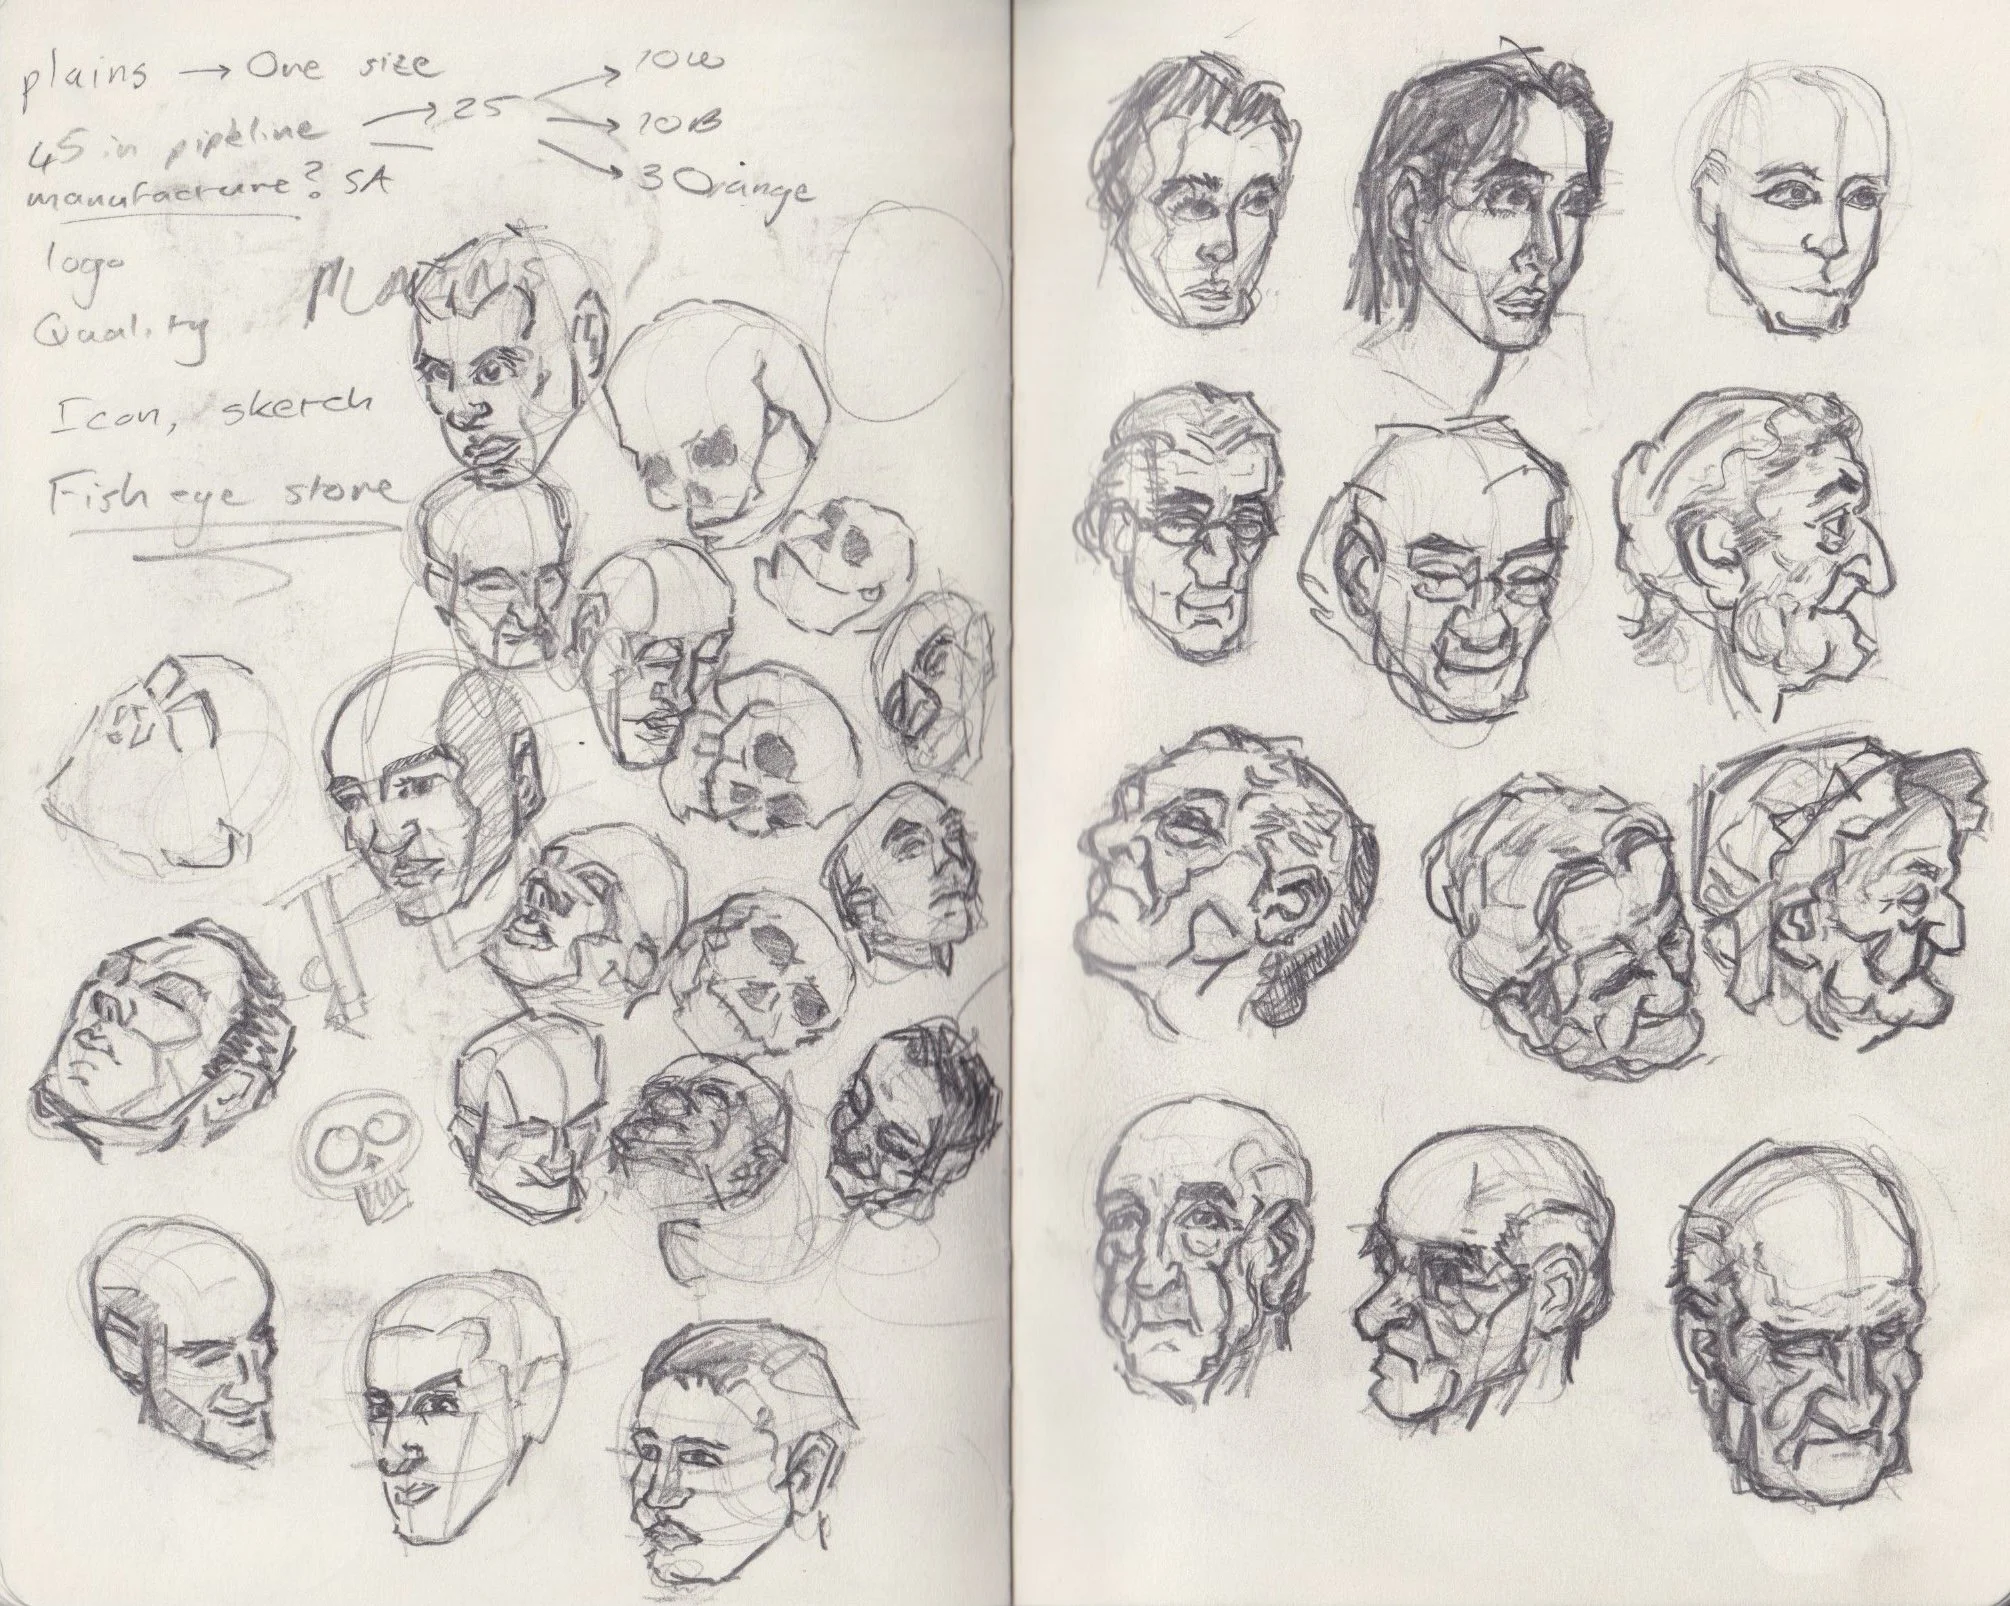 plains → One size
45 in pipeline → 25 → 10W
→ 10B
→ 3 Orange
manufacture? SA
logo
Quality
Icon, sketch
Fish eye store